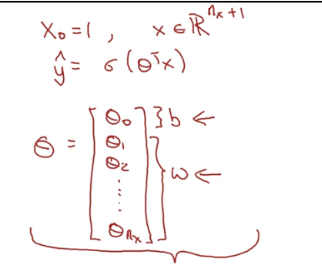 x₀ = 1 , x ∈ ℝⁿˣ⁺¹
ŷ = σ(θᵀx)
θ = [θ₀ θ₁ θ₂ ⋮ θₙₓ] } b ← } w ←